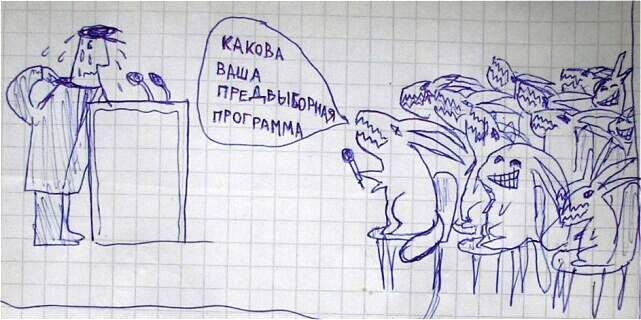 КАКОВА
ВАША
ПРЕДВЫБОРНАЯ
ПРОГРАММА